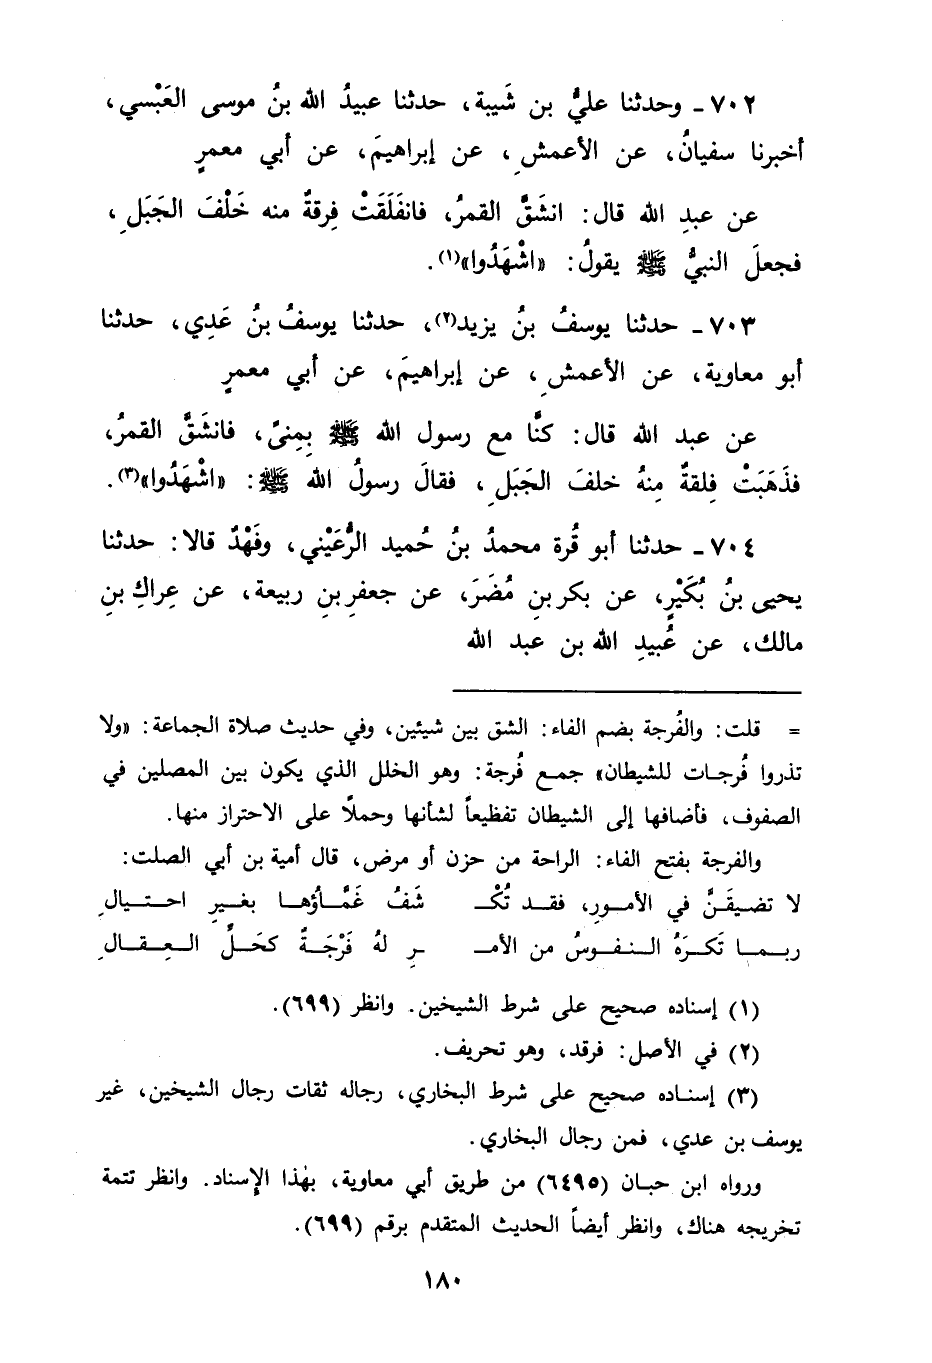 ٧٠٢ ـ وحدثنا عليُّ بن شَيبة، حدثنا عبيدُ الله بنُ موسى العَبْسي،
أخبرنا سفيانُ، عن الأعمشِ، عن إبراهيمَ، عن أبي معمرٍ
عن عبدِ الله قال: انشَقَّ القمرُ، فانفَلَقَتْ فِرقةٌ منه خَلْفَ الجَبَلِ،
فجعلَ النبيُّ ﷺ يقولُ: «اشْهَدُوا»(١).
٧٠٣ ـ حدثنا يوسفُ بنُ يزيد(٢)، حدثنا يوسفُ بنُ عَدِي، حدثنا
أبو معاوية، عن الأعمشِ، عن إبراهيمَ، عن أبي معمرٍ
عن عبد الله قال: كنَّا مع رسول الله ﷺ بِمِنىً، فانشَقَّ القمرُ،
فذَهَبَتْ فِلقةٌ مِنهُ خلفَ الجَبَلِ، فقالَ رسولُ الله ﷺ: «اشْهَدُوا»(٣).
٧٠٤ ـ حدثنا أبو قُرة محمدُ بنُ حُميد الرُّعَيْني، وفَهْدٌ قالا: حدثنا
يحيى بنُ بُكَيْرٍ، عن بكر بنِ مُضَرَ، عن جعفرِ بنِ ربيعة، عن عِراكِ بنِ
مالك، عن عُبيدِ الله بن عبد الله
= قلت: والفُرجة بضم الفاء: الشق بين شيئين، وفي حديث صلاة الجماعة: «ولا
تذروا فُرجات للشيطان» جمع فُرجة: وهو الخلل الذي يكون بين المصلين في
الصفوف، فأضافها إلى الشيطان تفظيعاً لشأنها وحملاً على الاحتراز منها.
والفرجة بفتح الفاء: الراحة من حزن أو مرض، قال أمية بن أبي الصلت:
لا تضيقَنَّ في الأمورِ، فقد تُكْـ ـشَفُ غَمَّاؤُها بغيرِ احتيالِ
ربما تَكرَهُ النفوسُ من الأمـ ـرِ لهُ فَرْجَةٌ كحَلِّ العِقالِ
(١) إسناده صحيح على شرط الشيخين. وانظر (٦٩٩).
(٢) في الأصل: فرقد، وهو تحريف.
(٣) إسناده صحيح على شرط البخاري، رجاله ثقات رجال الشيخين، غير
يوسف بن عدي، فمن رجال البخاري.
ورواه ابن حبان (٦٤٩٥) من طريق أبي معاوية، بهٰذا الإِسناد. وانظر تتمة
تخريجه هناك، وانظر أيضاً الحديث المتقدم برقم (٦٩٩).
١٨٠